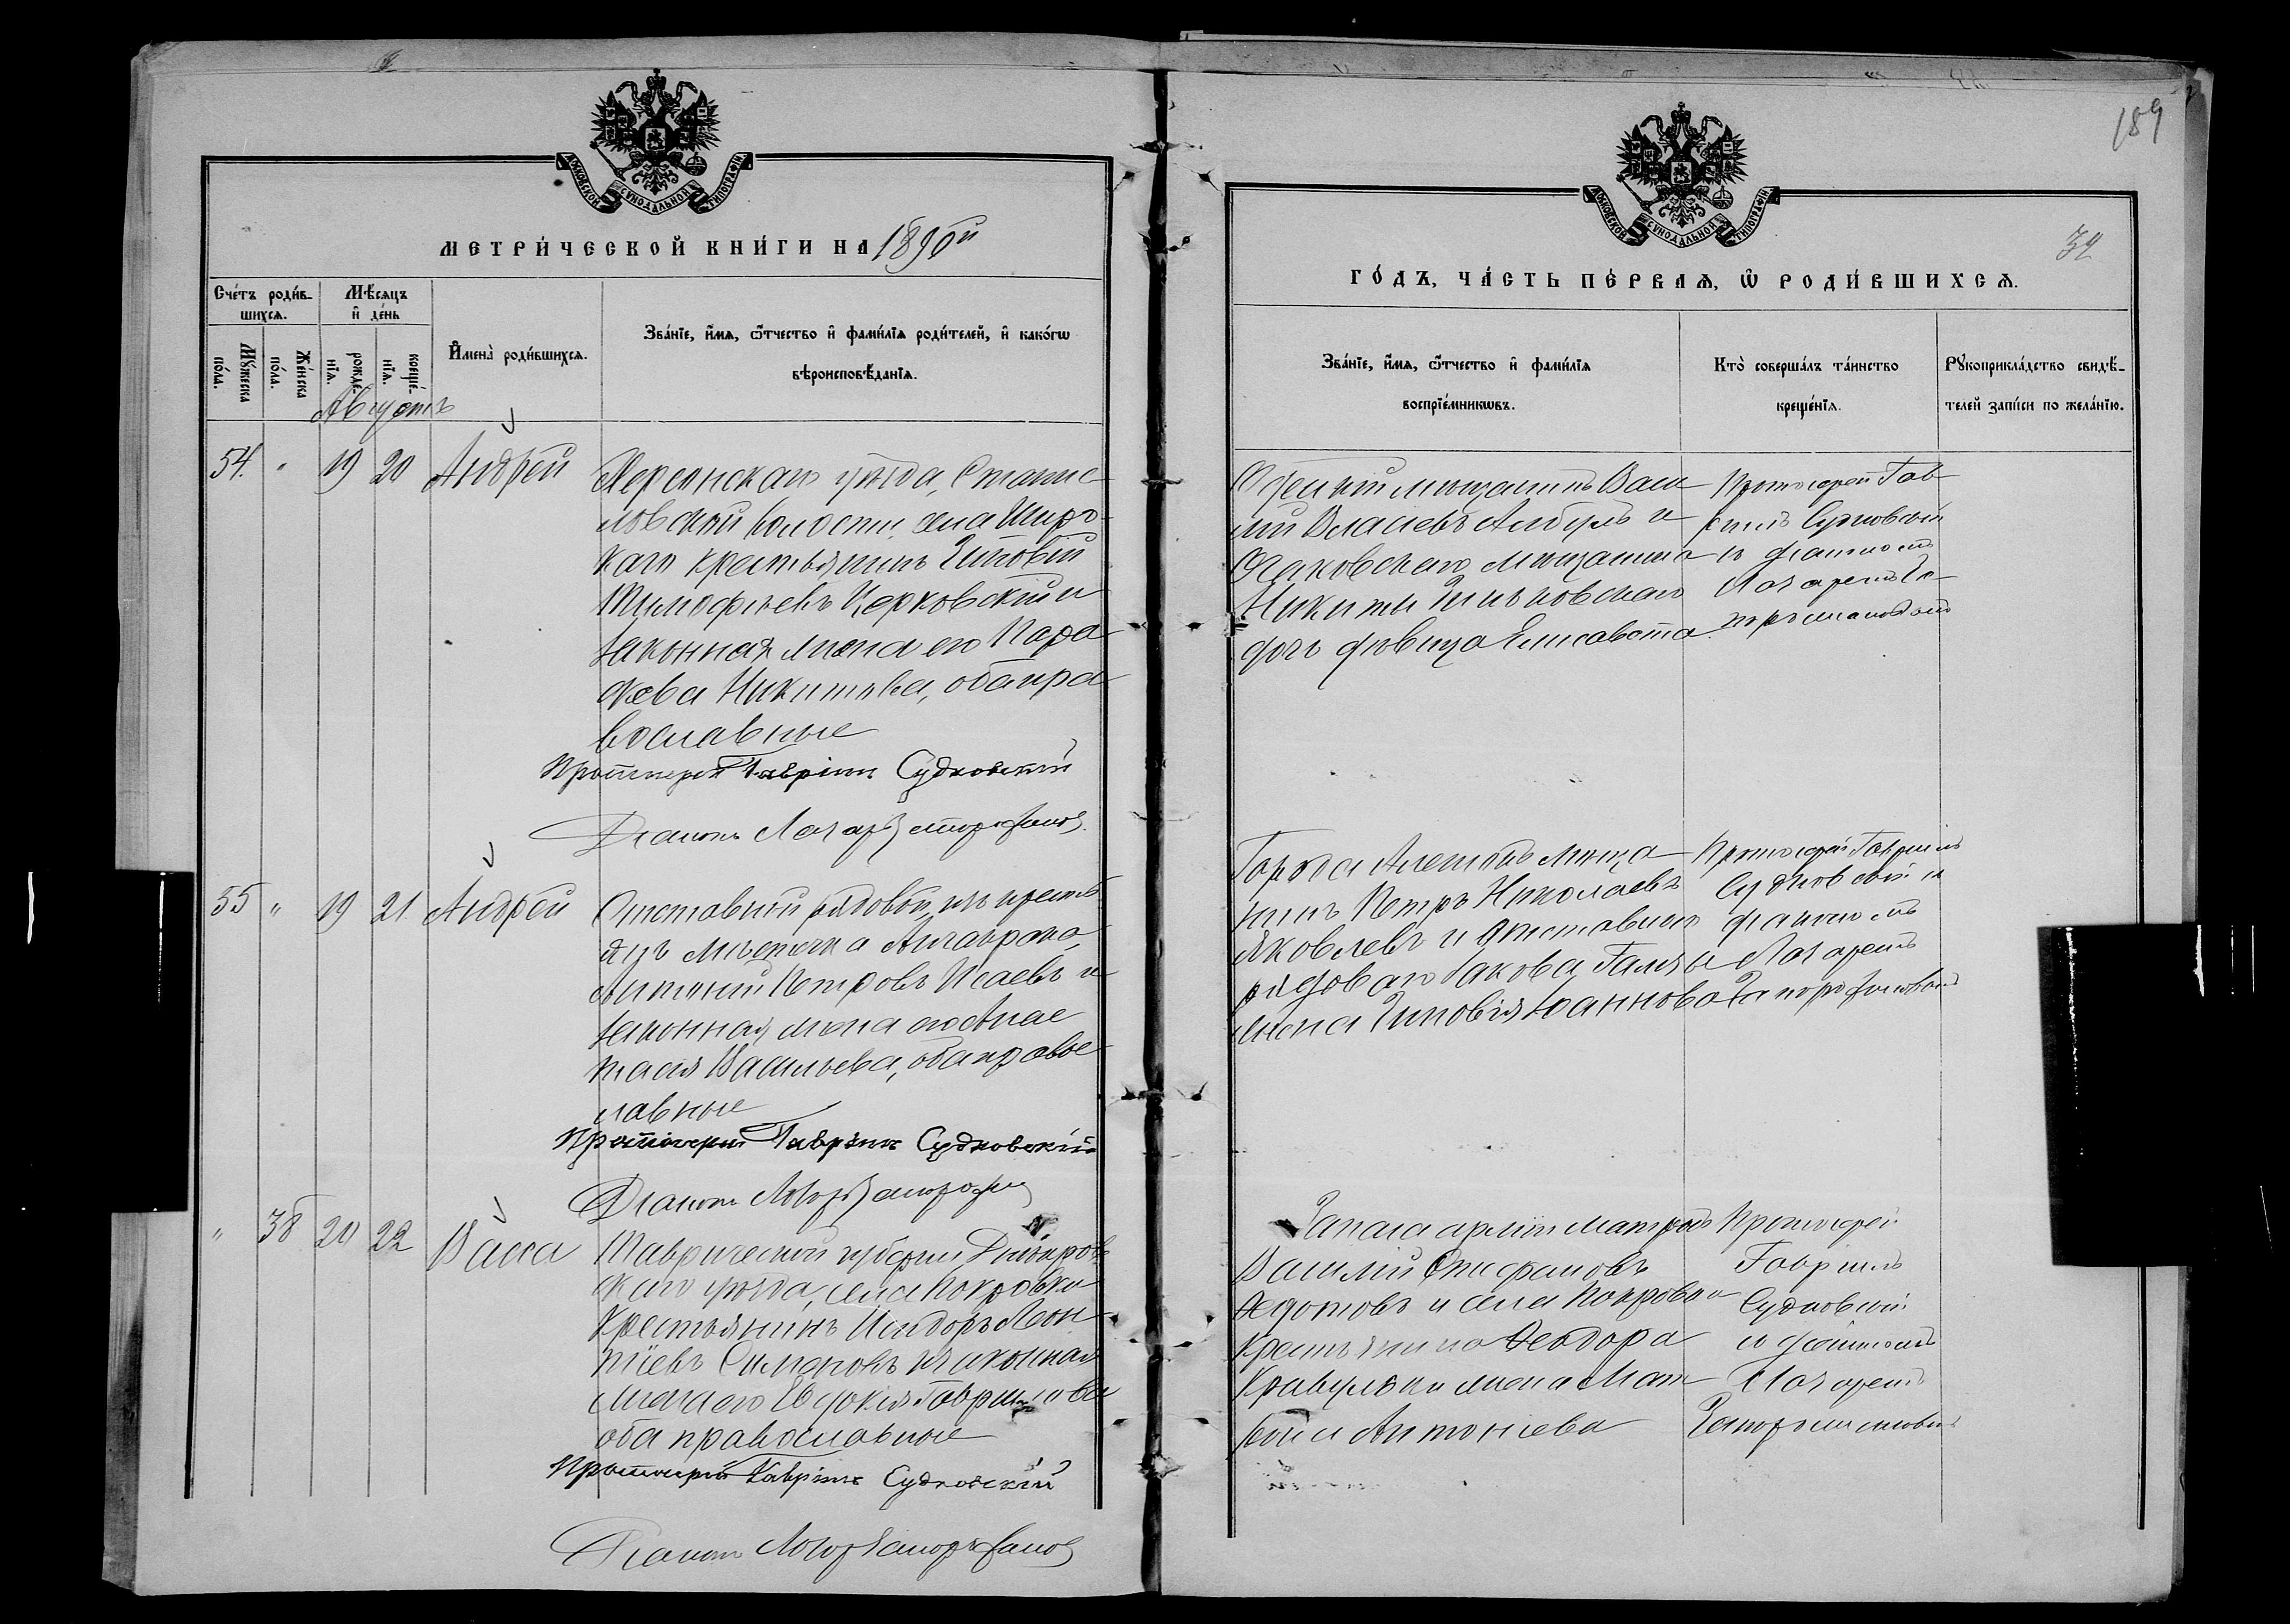 189
МОСКОВСКОЙ СѴНОДАЛЬНОЙ ТИПОГРАФІИ
МЕТРИ́ЧЕСКОЙ КНИ́ГИ НА 1896й
Сче́тъ роди́в-
шихсѧ.
Мѣ́сѧцъ
и҆ де́нь
Мꙋ́жеска
по́ла.
Же́нска
по́ла.
рожде́-
нїѧ.
креще́-
нїѧ.
И҆мена̀ роди́вшихсѧ.
Зва́нїе, и҆́мѧ, ѻ҆́тчество и҆ фами́лїѧ роди́телей, и҆ како́гѡ
вѣроисповѣ́данїѧ.
Августъ
54. " 19 20 Андрей
Херсонскаго уѣзда, Станис
лавской волости, села Широ-
каго крестьянинъ
Тимофѣевъ Церковскій и
законная жена его Парас
кева Никитина, оба пра
вославные
Протоіерей Гавріилъ Судковскій
Діаконъ Лазарь
55 " 19 21 Андрей
Отставной рядовой, изъ
мѣстечка
Антоній Петровъ Исаевъ и
законная жена его Анас
тасія Васильева, оба правос
лавные
Протоіерей Гавріилъ Судковскій
Діаконъ
" 38 20 22 Васса
Таврической губерніи Днѣпров
скаго уѣзда, села Покровки
крестьянинъ Исидоръ Леон
тіевъ законная
жена его Евдокія Гавриилова
оба православные
Протоіерей Гавріилъ Судковскій
Діаконъ
МОСКОВСКОЙ СѴНОДАЛЬНОЙ ТИПОГРАФІИ
32
ГО́ДЪ, ЧА́СТЬ ПЕ́РВАѦ, Ѡ҆ РОДИ́ВШИХСѦ.
Зва́нїе, и҆́мѧ, ѻ҆́тчество и҆ фами́лїѧ
воспрїе́мникѡвъ.
Кто̀ соверша́лъ та́инство
креще́нїѧ.
Рꙋкоприкла́дство свидѣ́-
телей за́писи по жела́нїю.
мѣщанинъ Васи
лій Власіевъ и
Очаковскаго мѣщанина
Никиты
дочь дѣвица Елисавета
Протоіерей Гав
ріилъ Судковскій
и діаконъ
Лазарь
Города Алешекъ мѣща
нинъ Петръ Николаевъ
Яковлевъ и отставного
рядоваго Іакова
жена Зиновія Іоаннова
Протоіерей Гавріилъ
Судковскій и
діаконъ
Лазарь
Запаса арміи матросъ
Василій Стефановъ
Федотовъ и села Покровки
крестьянина Ѳеодора
жена Мат
рона Антоніева
Протоіерей
Гавріилъ
Судковскій
и діаконъ
Лазарь